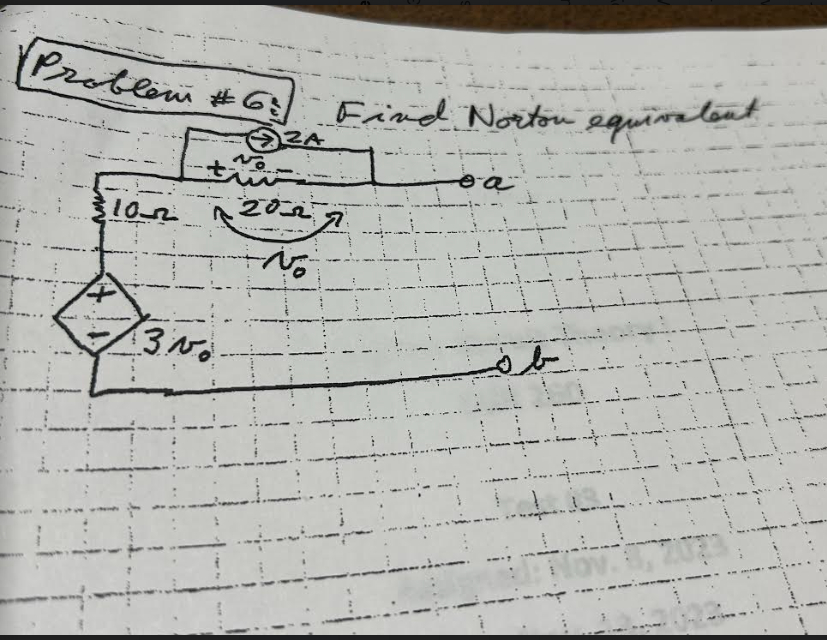 Problem # 6:
Find Norton equivalent
2A
+ v₀ -
a
10Ω
20Ω
v₀
+
-
3v₀
b
Assigned: Nov. 8, 2023
2023